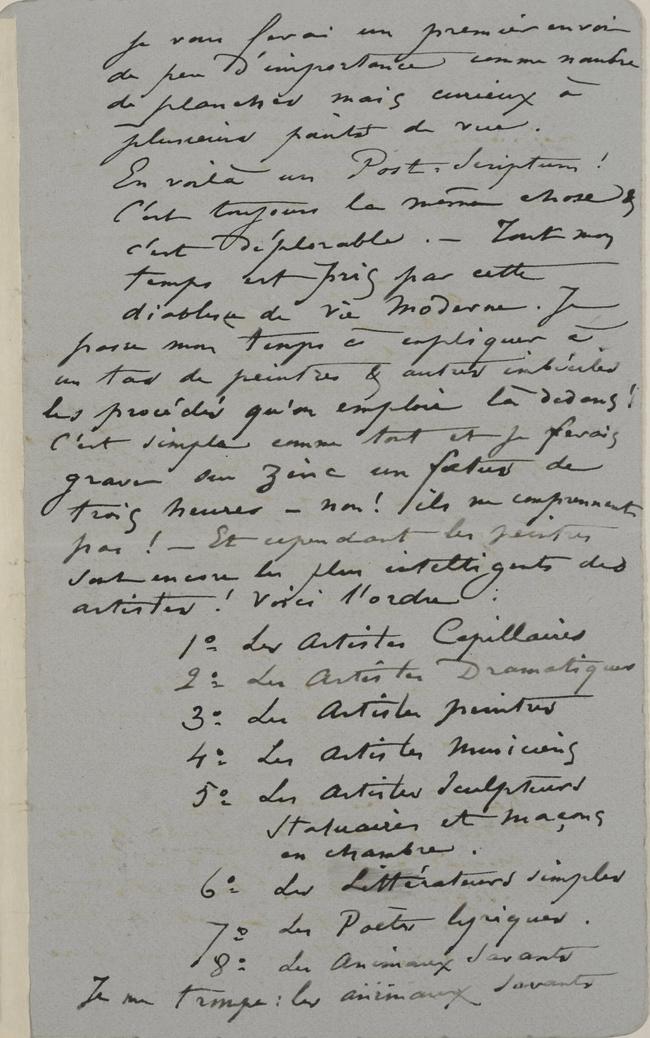 Je vous ferai un premier envoi
de peu d'importance comme nombre
de planches mais curieux à
plusieurs points de vue.
En voilà un Post-Scriptum !
C'est toujours la même chose &
c'est déplorable. — Tout mon
temps est pris par cette
diablesse de Vie Moderne. Je
passe mon temps à expliquer à
un tas de peintres & autres imbéciles
les procédés qu'on emploie là dedans !
C'est simple comme tout et je ferais
graver sur zinc un fœtus de
trois heures — non ! ils ne comprennent
pas ! — Et cependant les peintres
sont encore les plus intelligents des
artistes ! Voici l'ordre :
1º Les Artistes Capillaires
2º Les Artistes Dramatiques
3º Les Artistes peintres
4º Les Artistes Musiciens
5º Les Artistes Sculpteurs
Statuaires et maçons
en chambre.
6º Les Littérateurs simples
7º Les Poëtes lyriques.
8º Les Animaux Savants
Je me trompe : les animaux Savants